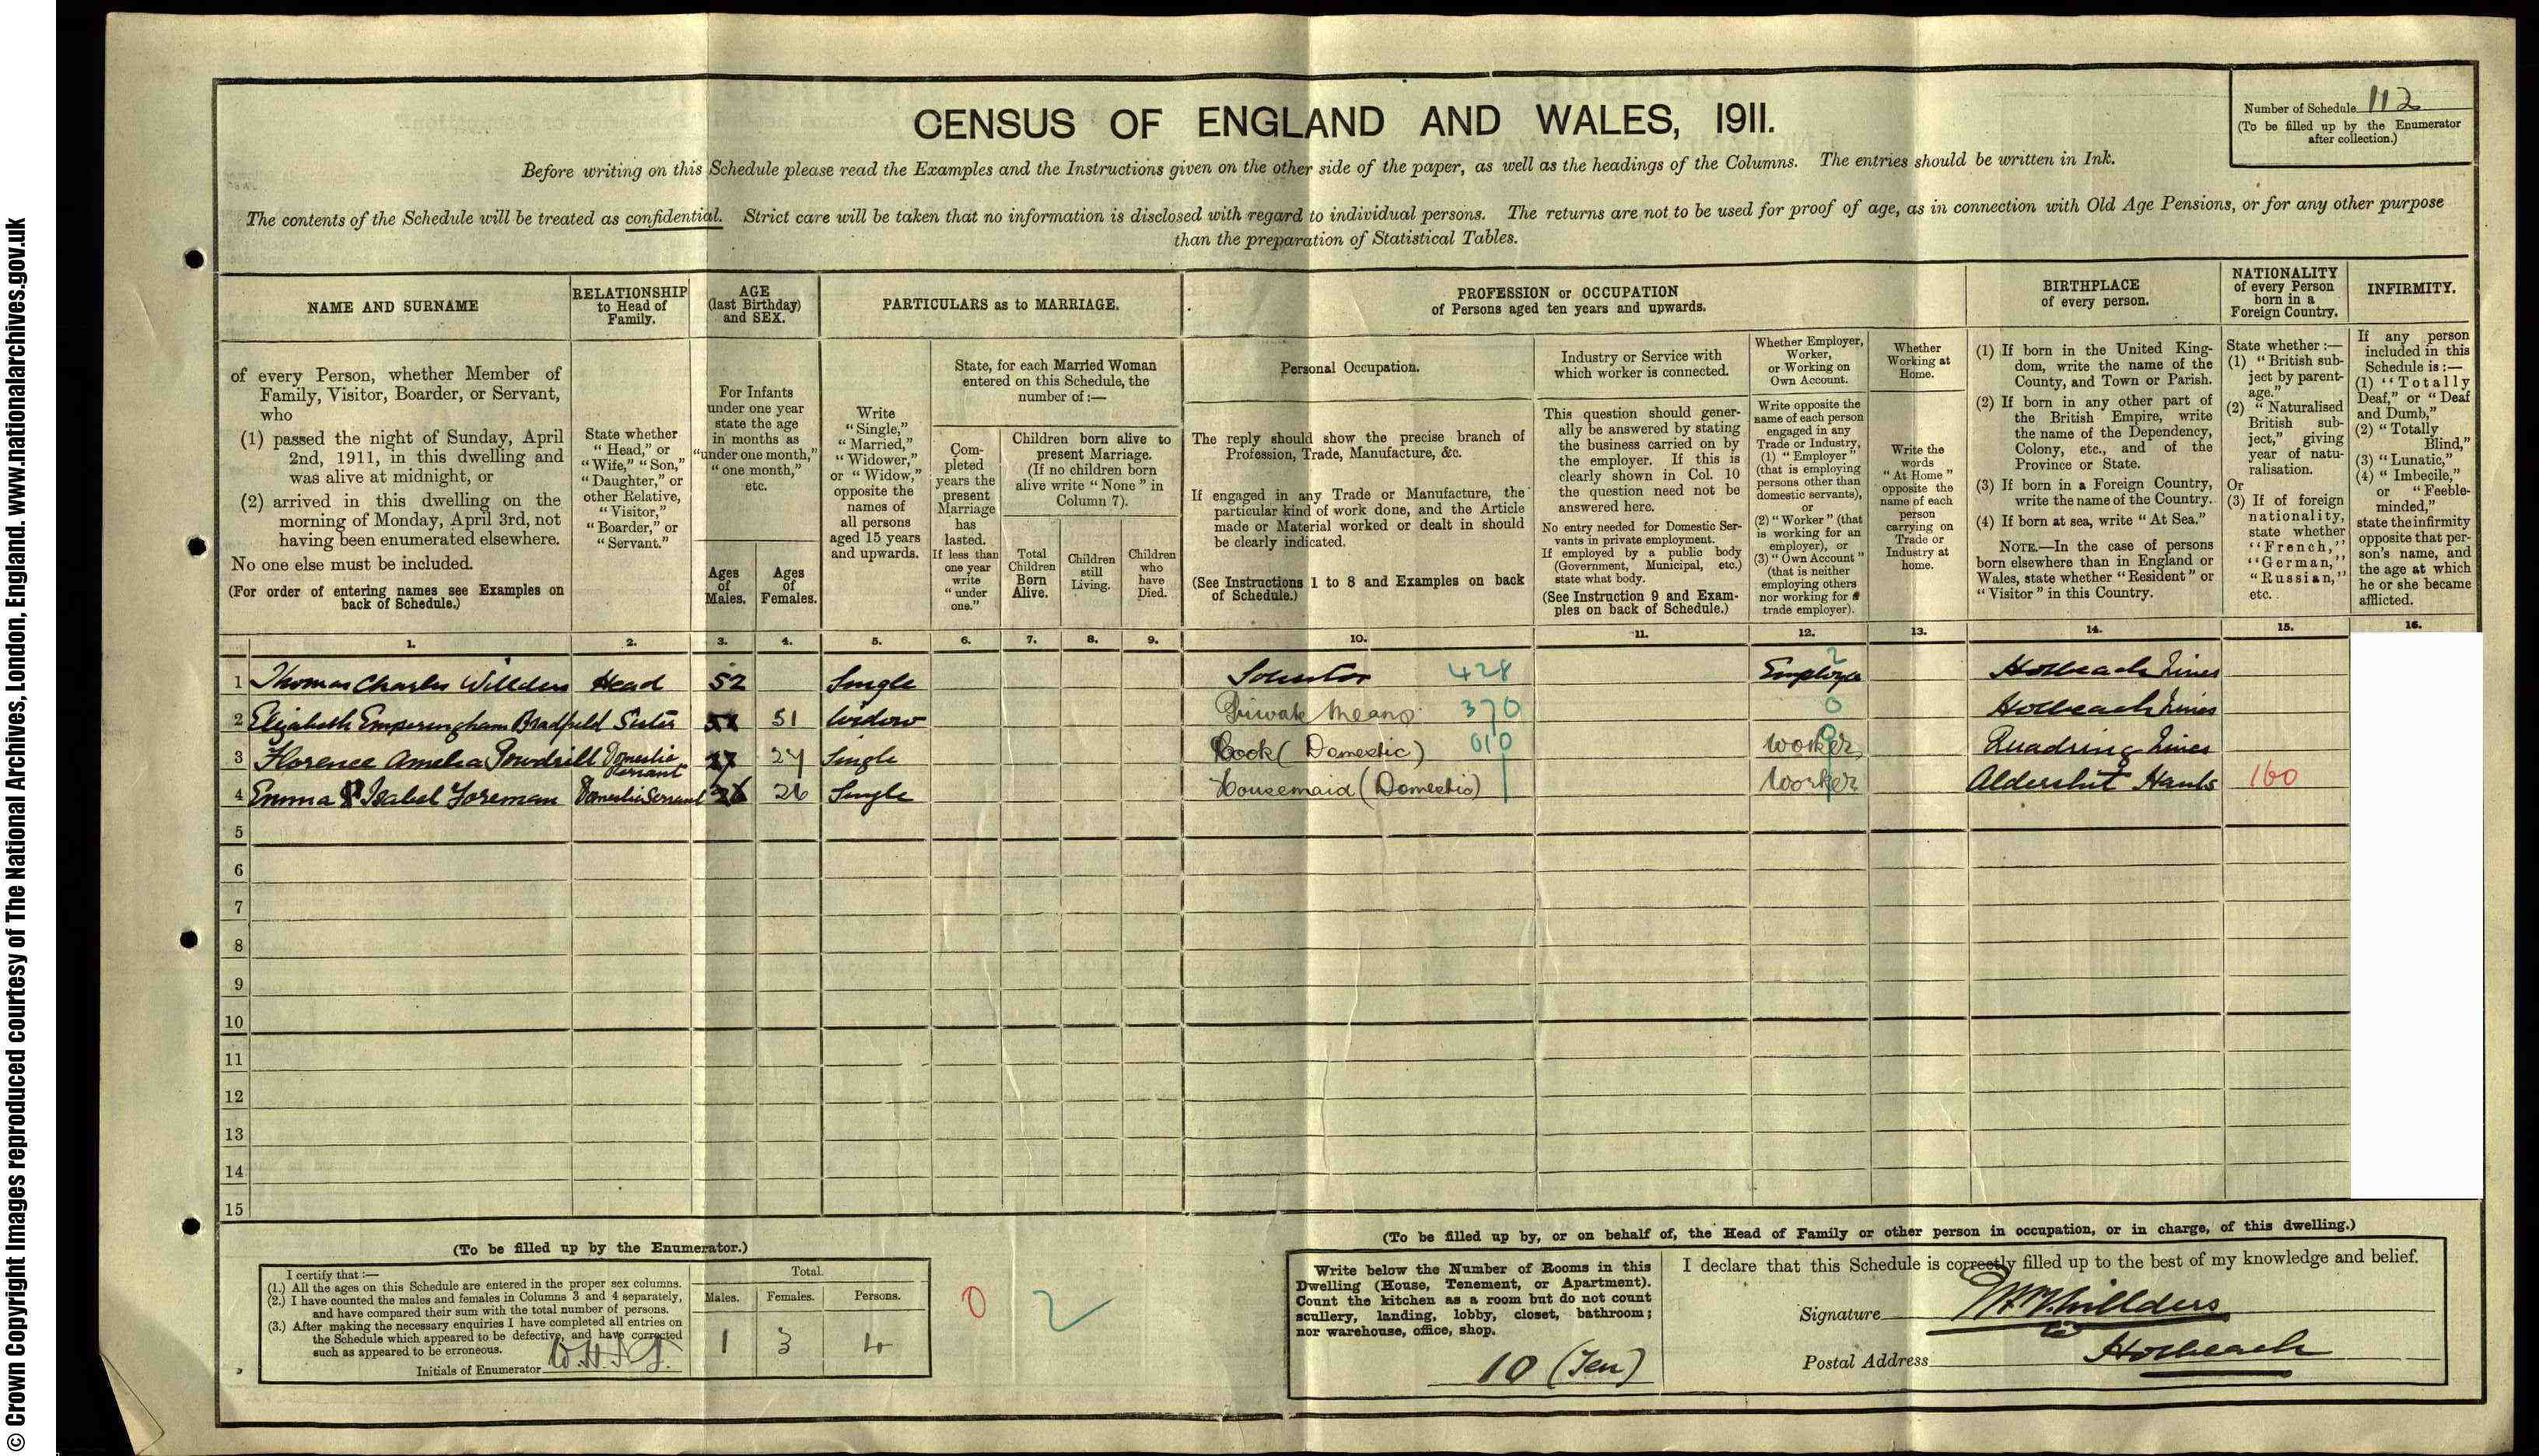 CENSUS OF ENGLAND AND WALES, 1911.
Number of Schedule 112
(To be filled up by the Enumerator
after collection.)
Before writing on this Schedule please read the Examples and the Instructions given on the other side of the paper, as well as the headings of the Columns. The entries should be written in Ink.
The contents of the Schedule will be treated as confidential. Strict care will be taken that no information is disclosed with regard to individual persons. The returns are not to be used for proof of age, as in connection with Old Age Pensions, or for any other purpose
than the preparation of Statistical Tables.
NAME AND SURNAME
of every Person, whether Member of
Family, Visitor, Boarder, or Servant,
who
(1) passed the night of Sunday, April
2nd, 1911, in this dwelling and
was alive at midnight, or
(2) arrived in this dwelling on the
morning of Monday, April 3rd, not
having been enumerated elsewhere.
No one else must be included.
(For order of entering names see Examples on
back of Schedule.)
RELATIONSHIP
to Head of
Family.
State whether
"Head," or
"Wife," "Son,"
"Daughter," or
other Relative,
"Visitor,"
"Boarder," or
"Servant."
AGE
(last Birthday)
and SEX.
For Infants
under one year
state the age
in months as
"under one month,"
"one month,"
etc.
Ages
of
Males.
Ages
of
Females.
PARTICULARS as to MARRIAGE.
Write
"Single,"
"Married,"
"Widower,"
or "Widow,"
opposite the
names of
all persons
aged 15 years
and upwards.
State, for each Married Woman
entered on this Schedule, the
number of :—
Com-
pleted
years the
present
Marriage
has
lasted.
If less than
one year
write
"under
one."
Children born alive to
present Marriage.
(If no children born
alive write "None" in
Column 7).
Total
Children
Born
Alive.
Children
still
Living.
Children
who
have
Died.
PROFESSION or OCCUPATION
of Persons aged ten years and upwards.
Personal Occupation.
The reply should show the precise branch of
Profession, Trade, Manufacture, &c.
If engaged in any Trade or Manufacture, the
particular kind of work done, and the Article
made or Material worked or dealt in should
be clearly indicated.
(See Instructions 1 to 8 and Examples on back
of Schedule.)
Industry or Service with
which worker is connected.
This question should gener-
ally be answered by stating
the business carried on by
the employer. If this is
clearly shown in Col. 10
the question need not be
answered here.
No entry needed for Domestic Ser-
vants in private employment.
If employed by a public body
(Government, Municipal, etc.)
state what body.
(See Instruction 9 and Exam-
ples on back of Schedule.)
Whether Employer,
Worker,
or Working on
Own Account.
Write opposite the
name of each person
engaged in any
Trade or Industry,
(1) "Employer"
(that is employing
persons other than
domestic servants),
or
(2) "Worker" (that
is working for an
employer), or
(3) "Own Account"
(that is neither
employing others
nor working for a
trade employer).
Whether
Working at
Home.
Write the
words
"At Home"
opposite the
name of each
person
carrying on
Trade or
Industry at
home.
BIRTHPLACE
of every person.
(1) If born in the United King-
dom, write the name of the
County, and Town or Parish.
(2) If born in any other part of
the British Empire, write
the name of the Dependency,
Colony, etc., and of the
Province or State.
(3) If born in a Foreign Country,
write the name of the Country.
(4) If born at sea, write "At Sea."
NOTE.—In the case of persons
born elsewhere than in England or
Wales, state whether "Resident" or
"Visitor" in this Country.
NATIONALITY
of every Person
born in a
Foreign Country.
State whether :—
(1) "British sub-
ject by parent-
age."
(2) "Naturalised
British sub-
ject," giving
year of natu-
ralisation.
Or
(3) If of foreign
nationality,
state whether
"French,"
"German,"
"Russian,"
etc.
INFIRMITY.
If any person
included in this
Schedule is :—
(1) "Totally
Deaf," or "Deaf
and Dumb,"
(2) "Totally
Blind,"
(3) "Lunatic,"
(4) "Imbecile,"
or "Feeble-
minded,"
state the infirmity
opposite that per-
son's name, and
the age at which
he or she became
afflicted.
1. 2. 3. 4. 5. 6. 7. 8. 9. 10. 11. 12. 13. 14. 15. 16.
1 Thomas Charles Willders Head 52 Single Solicitor 428 Employer 2 Holbeach Lincs
2 Elizabeth Emperingham Bradfield Sister 51 Widow Private Means 370 0 Holbeach Lincs
3 Florence Amelia Powdrill Domestic Servant 27 Single Cook (Domestic) 010 Worker Quadring Lincs
4 Emma Isabel Foreman Domestic Servant 26 Single Housemaid (Domestic) Worker Aldershot Hants 160
5
6
7
8
9
10
11
12
13
14
15
(To be filled up by the Enumerator.)
I certify that :—
(1.) All the ages on this Schedule are entered in the proper sex columns.
(2.) I have counted the males and females in Columns 3 and 4 separately,
and have compared their sum with the total number of persons.
(3.) After making the necessary enquiries I have completed all entries on
the Schedule which appeared to be defective, and have corrected
such as appeared to be erroneous.
Initials of Enumerator
Total.
Males. Females. Persons.
1 3 4
0 2
(To be filled up by, or on behalf of, the Head of Family or other person in occupation, or in charge, of this dwelling.)
Write below the Number of Rooms in this
Dwelling (House, Tenement, or Apartment).
Count the kitchen as a room but do not count
scullery, landing, lobby, closet, bathroom;
nor warehouse, office, shop.
10 (Ten)
I declare that this Schedule is correctly filled up to the best of my knowledge and belief.
Signature Willders
Postal Address Holbeach
© Crown Copyright Images reproduced courtesy of The National Archives, London, England. www.nationalarchives.gov.uk